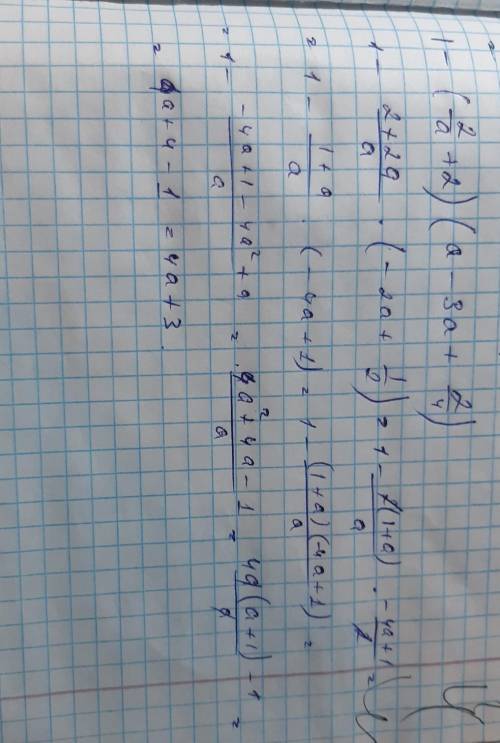 1 - (2/a + 2)(a - 3a + 2/4)
1 - (2+2a)/a · (-2a + 1/2) = 1 - 2(1+a)/a · (-4a+1)/2 =
= 1 - (1+a)/a · (-4a+1) = 1 - (1+a)(-4a+1)/a =
= 1 - (-4a+1-4a²+a)/a = (4a²+4a-1)/a = 4a(a+1)/a - 1 =
= 4a+4-1 = 4a+3.